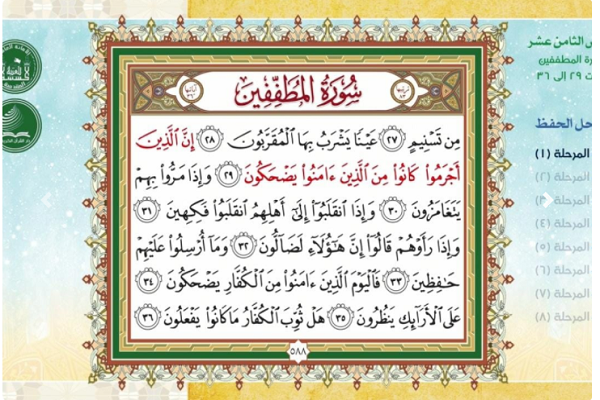 سُورَةُ المُطَفِّفِينَ
مِن تَسْنِيمٍ ٢٧ عَيْنًا يَشْرَبُ بِهَا ٱلْمُقَرَّبُونَ ٢٨ إِنَّ ٱلَّذِينَ
أَجْرَمُوا۟ كَانُوا۟ مِنَ ٱلَّذِينَ ءَامَنُوا۟ يَضْحَكُونَ ٢٩ وَإِذَا مَرُّوا۟ بِهِمْ
يَتَغَامَزُونَ ٣٠ وَإِذَا ٱنقَلَبُوٓا۟ إِلَىٰٓ أَهْلِهِمُ ٱنقَلَبُوا۟ فَكِهِينَ ٣١
وَإِذَا رَأَوْهُمْ قَالُوٓا۟ إِنَّ هَـٰٓؤُلَآءِ لَضَآلُّونَ ٣٢ وَمَآ أُرْسِلُوا۟ عَلَيْهِمْ
حَـٰفِظِينَ ٣٣ فَٱلْيَوْمَ ٱلَّذِينَ ءَامَنُوا۟ مِنَ ٱلْكُفَّارِ يَضْحَكُونَ ٣٤
عَلَى ٱلْأَرَآئِكِ يَنظُرُونَ ٣٥ هَلْ ثُوِّبَ ٱلْكُفَّارُ مَا كَانُوا۟ يَفْعَلُونَ ٣٦
٥٨٨
الثامن عشر
المطففين
٢٩ إلى ٣٦
الحفظ
المرحلة (١)
المرحلة (٢)
المرحلة (٤)
المرحلة (٥)
المرحلة (٦)
المرحلة (٧)
المرحلة (٨)